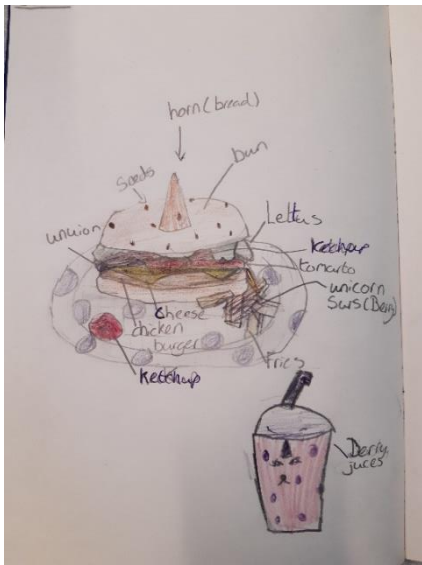 horn (bread)
bun
seeds
Lettus
unuion
Ketchup
tomarto
unicorn
Surs (Berry)
cheese
chicken
burger
Fries
Ketchup
Berry
juces